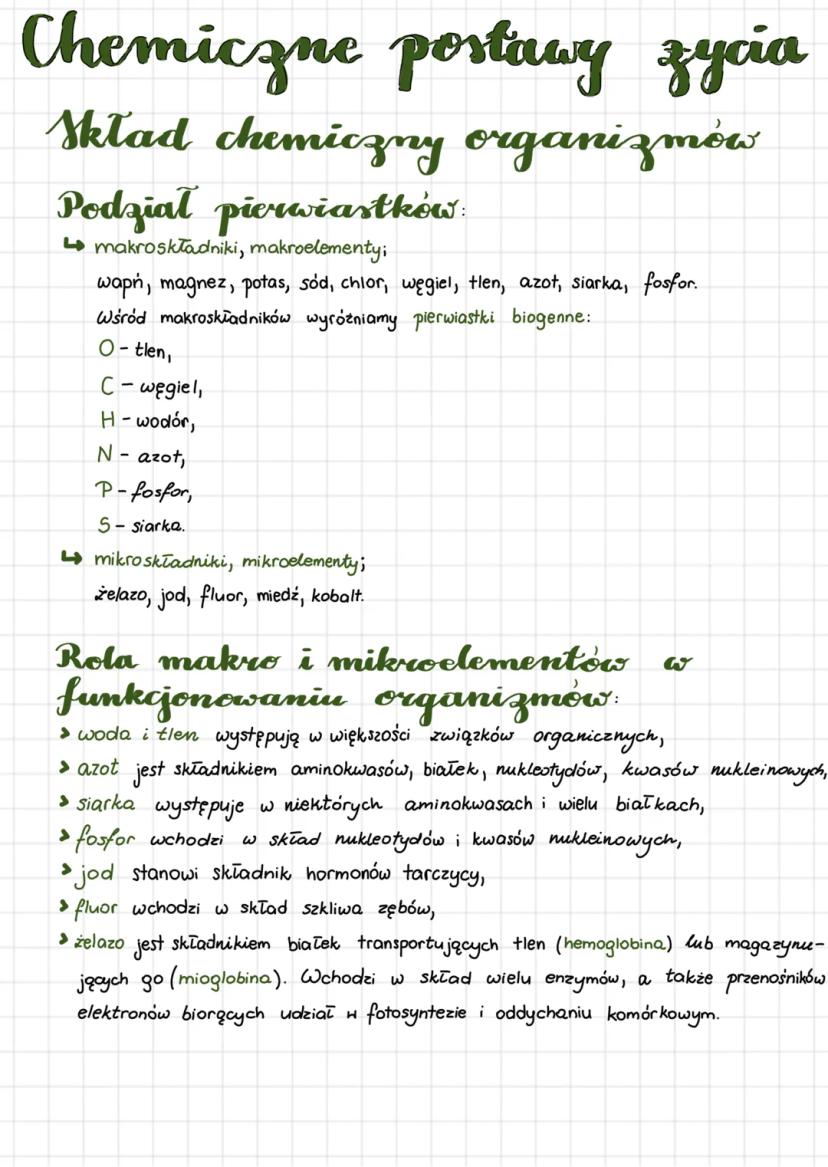 Chemiczne postawy życia
Skład chemiczny organizmów
Podział pierwiastków:
↳ makroskładniki, makroelementy;
wapń, magnez, potas, sód, chlor, węgiel, tlen, azot, siarka, fosfor.
Wśród makroskładników wyróżniamy pierwiastki biogenne:
O - tlen,
C - węgiel,
H - wodór,
N - azot,
P - fosfor,
S - siarka.
↳ mikroskładniki, mikroelementy;
żelazo, jod, fluor, miedź, kobalt.
Rola makro i mikroelementów w
funkcjonowaniu organizmów:
> woda i tlen występują w większości związków organicznych,
> azot jest składnikiem aminokwasów, białek, nukleotydów, kwasów nukleinowych,
> siarka występuje w niektórych aminokwasach i wielu białkach,
> fosfor wchodzi w skład nukleotydów i kwasów nukleinowych,
> jod stanowi składnik hormonów tarczycy,
> fluor wchodzi w skład szkliwa zębów,
> żelazo jest składnikiem białek transportujących tlen (hemoglobina) lub magazynu-
jących go (mioglobina). Wchodzi w skład wielu enzymów, a także przenośników
elektronów biorących udział w fotosyntezie i oddychaniu komórkowym.